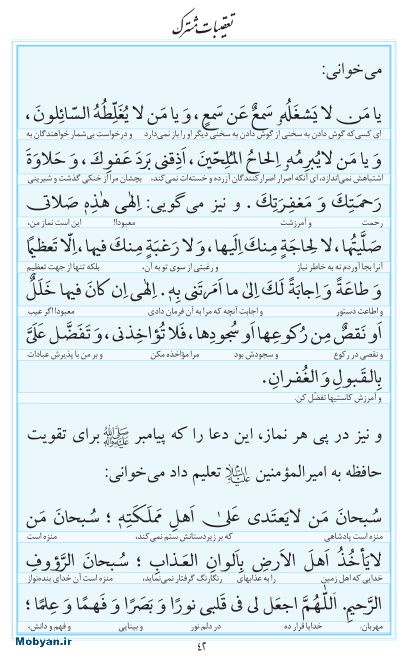 تعقیبات مشترک
می‌خوانی:
یا مَن لا یَشغَلُهُ سَمعٌ عَن سَمعٍ ، وَ یا مَن لا یُغَلِّطُهُ السّائِلونَ ،
ای کسی که گوش دادن به سخنی از گوش دادن به سخنی دیگر او را باز نمی‌دارد و درخواست بی‌شمار خواهندگان به
وَ یا مَن لا یُبرِمُهُ اِلحاحُ المُلِحّینَ، اَذِقنی بَردَ عَفوِکَ ، وَ حَلاوَةَ
اشتباهش نمی‌اندازد، ای آنکه اصرار اصرار کنندگان آزرده و خسته‌ات نمی‌کند، بچشان مرا از خنکی گذشت و شیرینی
رَحمَتِکَ وَ مَغفِرَتِکَ . و نیز می‌گویی: اِلهی هٰذِهِ صَلاتی
رحمت و آمرزشت معبودا! این است نماز من،
صَلَّیتُها، لا لِحاجَةٍ مِنکَ اِلَیها، وَ لا رَغبَةٍ مِنکَ فیها، اِلّا تَعظیمًا
آنرا بجا آوردم نه به خاطر نیاز و رغبتی از سوی تو به آن، بلکه تنها از جهت تعظیم
وَ طاعَةً وَ اِجابَةً لَکَ اِلیٰ ما اَمَرتَنی بِهِ . اِلهی اِن کانَ فیها خَلَلٌ
و اطاعت دستور و اجابت آنچه که مرا به آن فرمان دادی معبودا! اگر عیب
اَو نَقصٌ مِن رُکوعِها اَو سُجودِها، فَلا تُؤاخِذنی ، وَ تَفَضَّل عَلَیَّ
و نقصی در رکوع و سجودش بود مرا مؤاخذه مکن و بر من با پذیرش عبادات
بِالقَبولِ وَ الغُفرانِ.
و آمرزش کاستیها تفضّل کن.
و نیز در پی هر نماز، این دعا را که پیامبر ﷺ برای تقویت
حافظه به امیرالمؤمنین علیه‌السلام تعلیم داد می‌خوانی:
سُبحانَ مَن لا یَعتَدی عَلیٰ اَهلِ مَملَکَتِهِ ؛ سُبحانَ مَن
منزه است پادشاهی که بر زیردستانش ستم نمی‌کند، منزه است
لا یَأخُذُ اَهلَ الاَرضِ بِاَلوانِ العَذابِ ؛ سُبحانَ الرَّؤوفِ
خدایی که اهل زمین را به عذابهای رنگارنگ گرفتار نمی‌نماید، منزه است آن خدای بنده‌نواز
الرَّحیمِ. اَللّٰهُمَّ اجعَل لی فی قَلبی نورًا وَ بَصَرًا وَ فَهمًا وَ عِلمًا ؛
مهربان. خدایا قرار ده در دلم نور و بینایی و فهم و دانش،
۴۲
Mobyan.ir